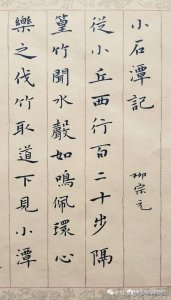 小石潭記
柳宗元
從小丘西行百二十步隔
篁竹聞水聲如鳴佩環心
樂之伐竹取道下見小潭